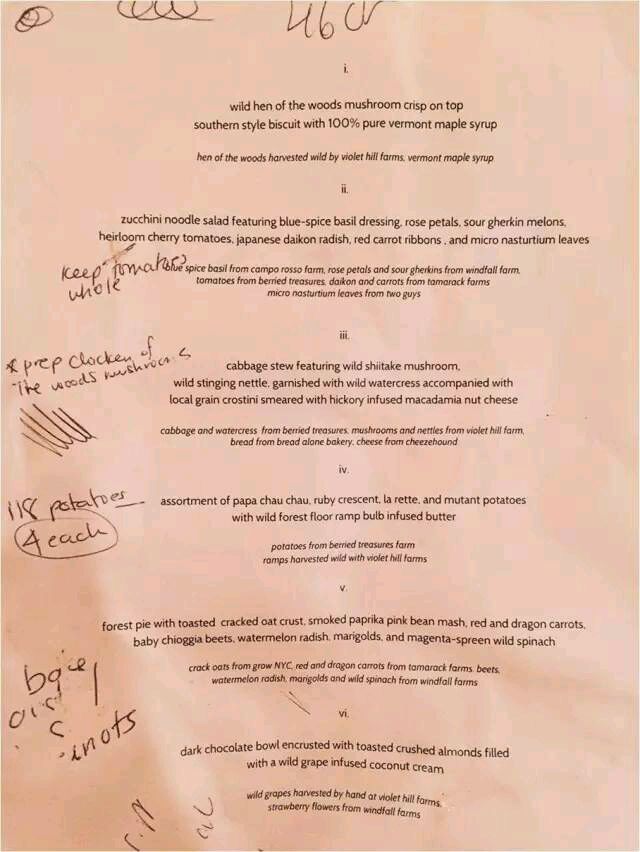 i.
wild hen of the woods mushroom crisp on top
southern style biscuit with 100% pure vermont maple syrup
hen of the woods harvested wild by violet hill farms, vermont maple syrup
ii.
zucchini noodle salad featuring blue-spice basil dressing, rose petals, sour gherkin melons,
heirloom cherry tomatoes, japanese daikon radish, red carrot ribbons , and micro nasturtium leaves
keep tomatoes
whole
blue spice basil from campo rosso farm, rose petals and sour gherkins from windfall farm,
tomatoes from berried treasures, daikon and carrots from tamarack farms
micro nasturtium leaves from two guys
iii.
* prep chicken of
the woods mushrooms
cabbage stew featuring wild shiitake mushroom,
wild stinging nettle, garnished with wild watercress accompanied with
local grain crostini smeared with hickory infused macadamia nut cheese
cabbage and watercress from berried treasures, mushrooms and nettles from violet hill farm,
bread from bread alone bakery, cheese from cheezehound
iv.
118 potatoes
4 each
assortment of papa chau chau, ruby crescent, la rette, and mutant potatoes
with wild forest floor ramp bulb infused butter
potatoes from berried treasures farm
ramps harvested wild with violet hill farms
v.
forest pie with toasted cracked oat crust, smoked paprika pink bean mash, red and dragon carrots,
baby chioggia beets, watermelon radish, marigolds, and magenta-spreen wild spinach
crack oats from grow NYC, red and dragon carrots from tamarack farms, beets,
watermelon radish, marigolds and wild spinach from windfall farms
vi.
dark chocolate bowl encrusted with toasted crushed almonds filled
with a wild grape infused coconut cream
wild grapes harvested by hand at violet hill farms,
strawberry flowers from windfall farms